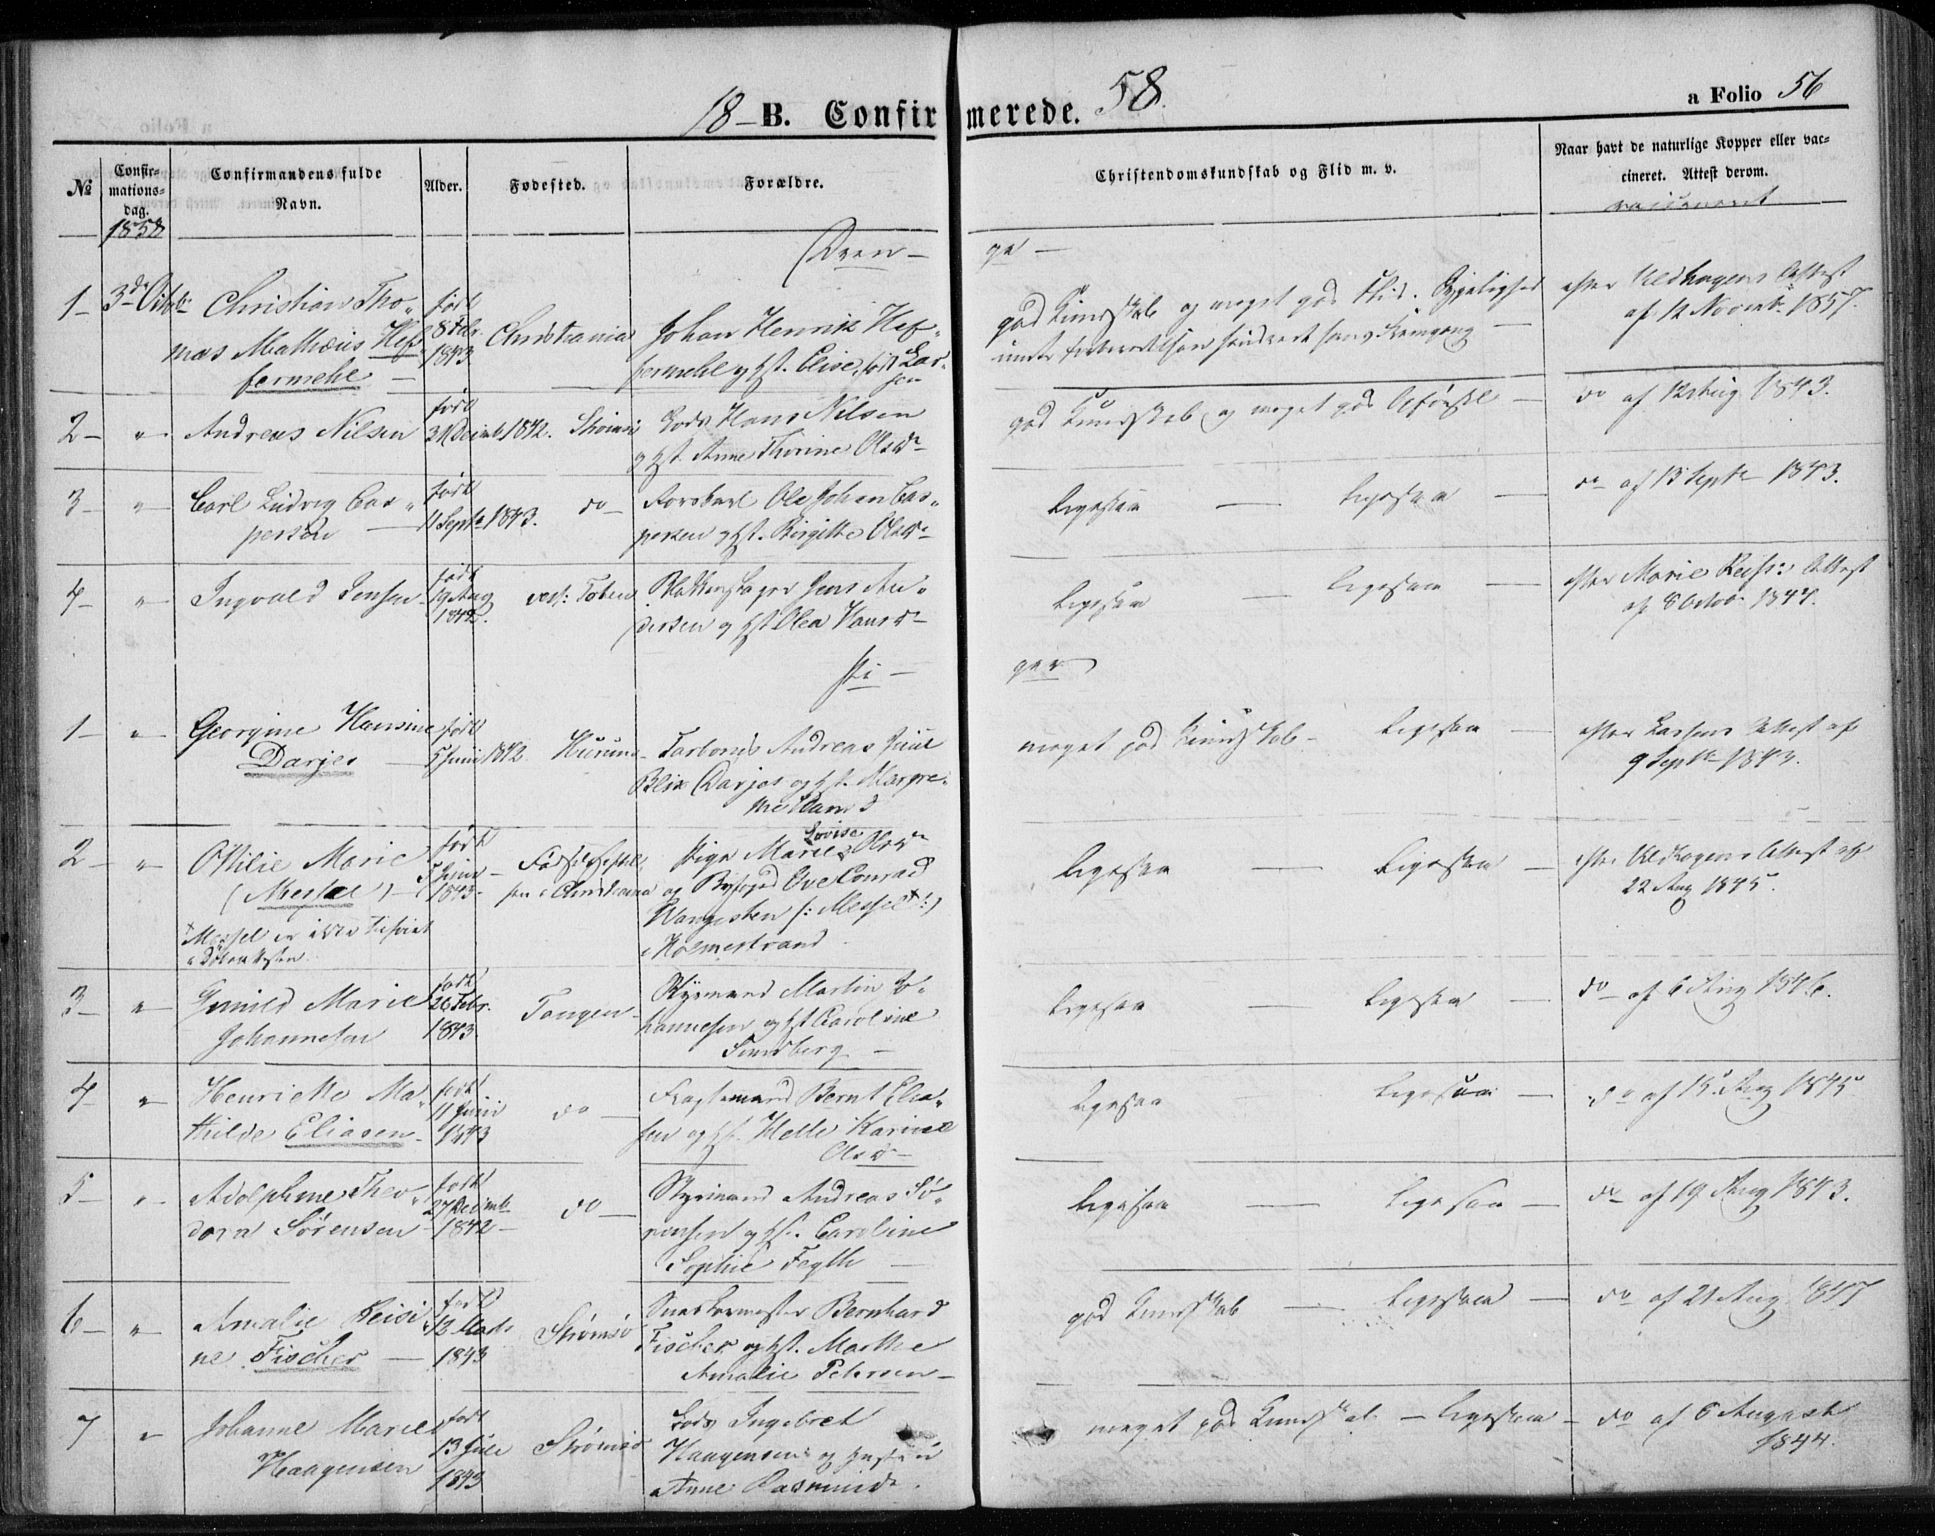 18-B. Confirmerede. 58.
a Folio 56
№
Confir-
mations-
dag.
Confirmandens fulde
Navn.
Alder.
Fødested.
Forældre.
Christendomskundskab og Flid m. v.
Naar havt de naturlige Kopper eller vac-
cineret. Attest derom.
vaccineret
1858
Dren- ge -
1- 3die Octobr Christian Tho-
mas Mathæus Hef-
fermehl
født
8 Febr.
1843
Christiania
Johan Henrik Hef-
fermehl og Hst. Elise, født Lar-
sen
god Kundskab og meget god Flid. Sygelighed
under Forberedelsen hindret hans Fremgang -
efter Uldhagens Attest
af 12 Novemb. 1857.
2- " Andreas Nilsen
født
31 Decimb. 1842.
Strømsø
Lods Hans Nilsen
og Hst. Anne Thorine Olsdr
god Kundskab og meget god Opførsel -
do af 12 Aug 1843.
3- " Carl Ludvig Cas-
persen
født
11 Septr 1843.
do
Ole Johan Cas-
persen og Hst. Birgitte Olsdr
Ligesaa - Ligesaa -
do af 13 Septr 1843.
4- " Ingvald Jensen
født
19 Aug
1842.
Jens An-
dersen og Hst. Olea Hansdr
Ligesaa - Ligesaa -
efter Marie Attest
af 8 Octob. 1844.
Pi- ger
1- " Georgine Hansine
Darjes
født
5 Juni 1842
Hurum
Andreas Juul
Blix Darjes og Hst. Margre-
the
meget god Kundskab - Ligesaa -
efter Larsens Attest af
9 Septr 1843.
2- " Ottilie Marie
(Messel)
født
Juni
1843.
Fødselsstiftel-
sen i Christiania
Pige Marie Lovise Olsdr
og Byfoged Ove Conrad
(: Messel :)
i Holmestrand
Messel er ikke tilføiet
i Døbeattesten.
Ligesaa - Ligesaa -
efter Uldhagens Attest af
22 Aug 1845.
3- " Gunild Marie
Johannesen
født
26 Febr.
1843.
Tangen
Styrmand Martin Jo-
hannesen og Hst. Caroline
Sundberg -
Ligesaa - Ligesaa -
do af 6 Aug 1846.
4 " Henriette Ma-
thilde Eliasen
født
11 Juni
1843
do
Fragtemand Bernt Elia-
sen og Hst. Helle Karine
Olsdr
Ligesaa - Ligesaa -
do af 15 Aug 1845
5- " Adolphine Theo-
dora Sørensen
født
27 Decimb
1842
do
Styrmand Andreas Sø-
rensen og Hst. Caroline
Sophie Fegth
Ligesaa - Ligesaa -
do af 19 Aug 1843.
6- " Amalie Leisi-
ne Fischer
født
12 Marts
1843
Strømsø
Snedkermester Bernhard
Fischer og Hst. Marthe
Amalie Petersen -
god Kundskab - Ligesaa -
do af 21 Aug
7 " Johanne Marie
Haagensen
født
13 Juli
1843
Strømsø
Lods Ingebret
Haagensen og Hustru
Anne Rasmusdr.
meget god Kundskab - Ligesaa -
do af 6 August
1844.